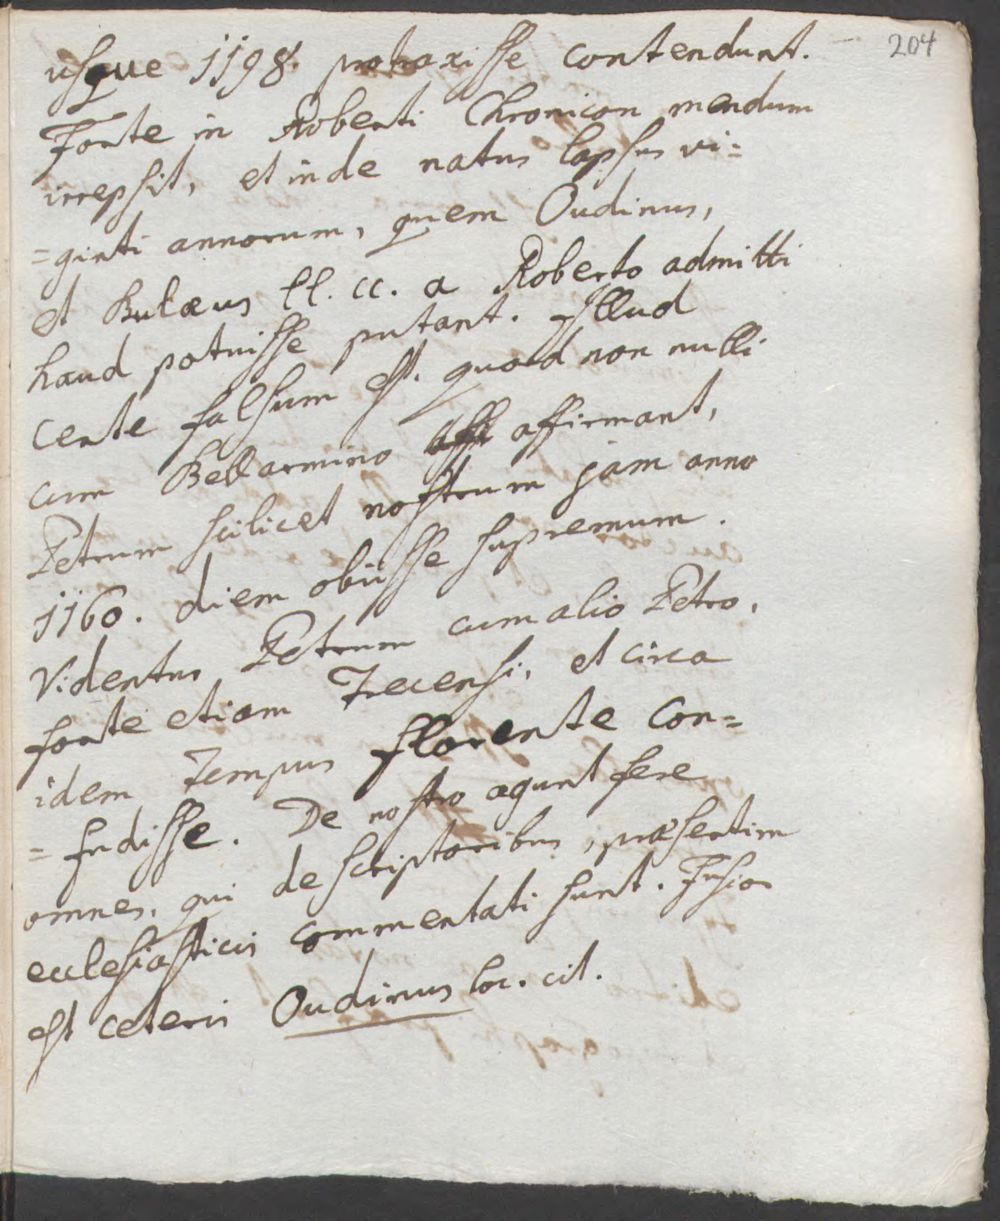 204
usque 1198. protraxisse contendunt.
Forte in Roberti Chronicon mendum
irrepsit, et inde natus lapsus vi=
=ginti annorum, quem Oudinus,
et Bulæus ll. cc. a Roberto admitti
haud potuisse putant. Illud
certe falsum est. quod non nulli
cum Bellarmino affirmant,
Petrum scilicet nostrum jam anno
1160. diem obiisse supremum.
Videntur Petrum cum alio Petro,
forte etiam Trecensi, et circa
idem tempus florente con=
=fudisse. De nostro agunt fere
omnes, qui de scriptoribus, præsertim
ecclesiasticis commentati sunt. Fusior
est ceteris Oudinus loc. cit.